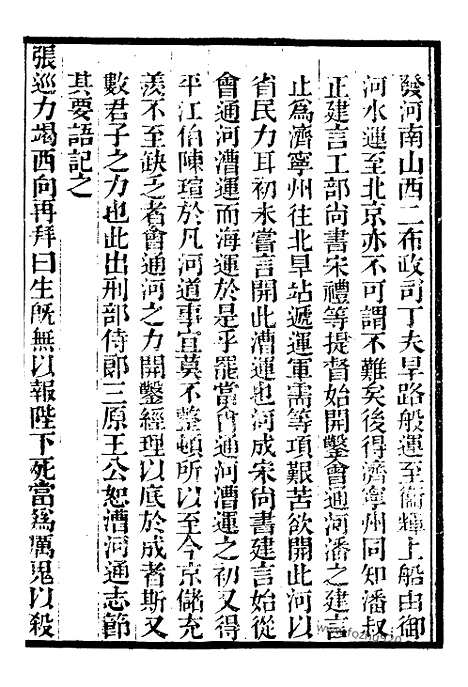 發河南山西二布政司丁夫旱路般運至衞輝上船由御
河水運至北京亦不可謂不難矣後得濟寧州同知潘叔
正建言工部尚書宋禮等提督始開鑿會通河潘之建言
止為濟寧州往北旱站遞運軍需等項艱苦欲開此河以
省民力耳初未嘗言開此漕運也河成宋尚書建言始從
會通河漕運而海運於是乎罷當會通河漕運之初又得
平江伯陳瑄於凡河道事宜莫不整頓所以至今京儲充
羡不至缺乏者會通河之力開鑿經理以底於成者斯又
數君子之力也此出刑部侍郎三原王公恕漕河通志節
其要語記之
張巡力竭西向再拜曰生旣無以報陛下死當為厲鬼以殺